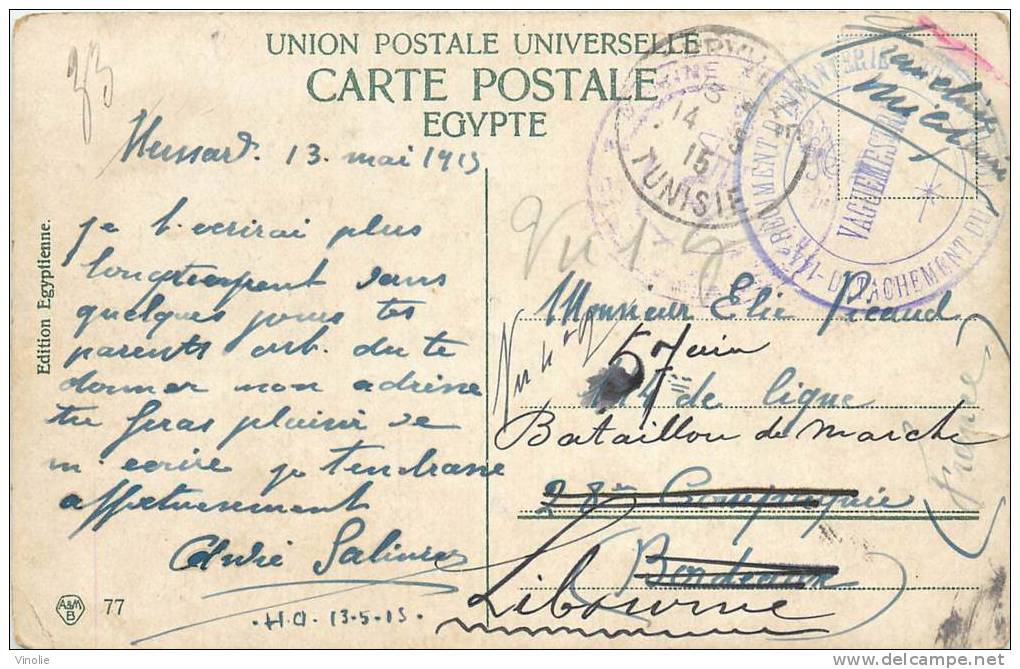 UNION POSTALE UNIVERSELLE
CARTE POSTALE
EGYPTE
Franchise
Militaire
13. mai 1915
je t. ecrirai plus
longtempent dans
quelques jours tes
parents ont. du te
donner mon adrisse
tu feras plaisir de
m. ecrire je t'embrasse
affectueusement
André
H.A. 13-5-15.
Edition Egyptienne.
A&M
B
77
14
15
TUNISIE
144e RÉGIMENT D'INFANTERIE
VAGUEMESTRE
DÉTACHEMENT DU
Monsieur Elie Picaud
57
de ligne
Bataillon de Marche
28me Compagnie
Bordeaux
Libourne
(France)
Vinolie
www.delcampe.net